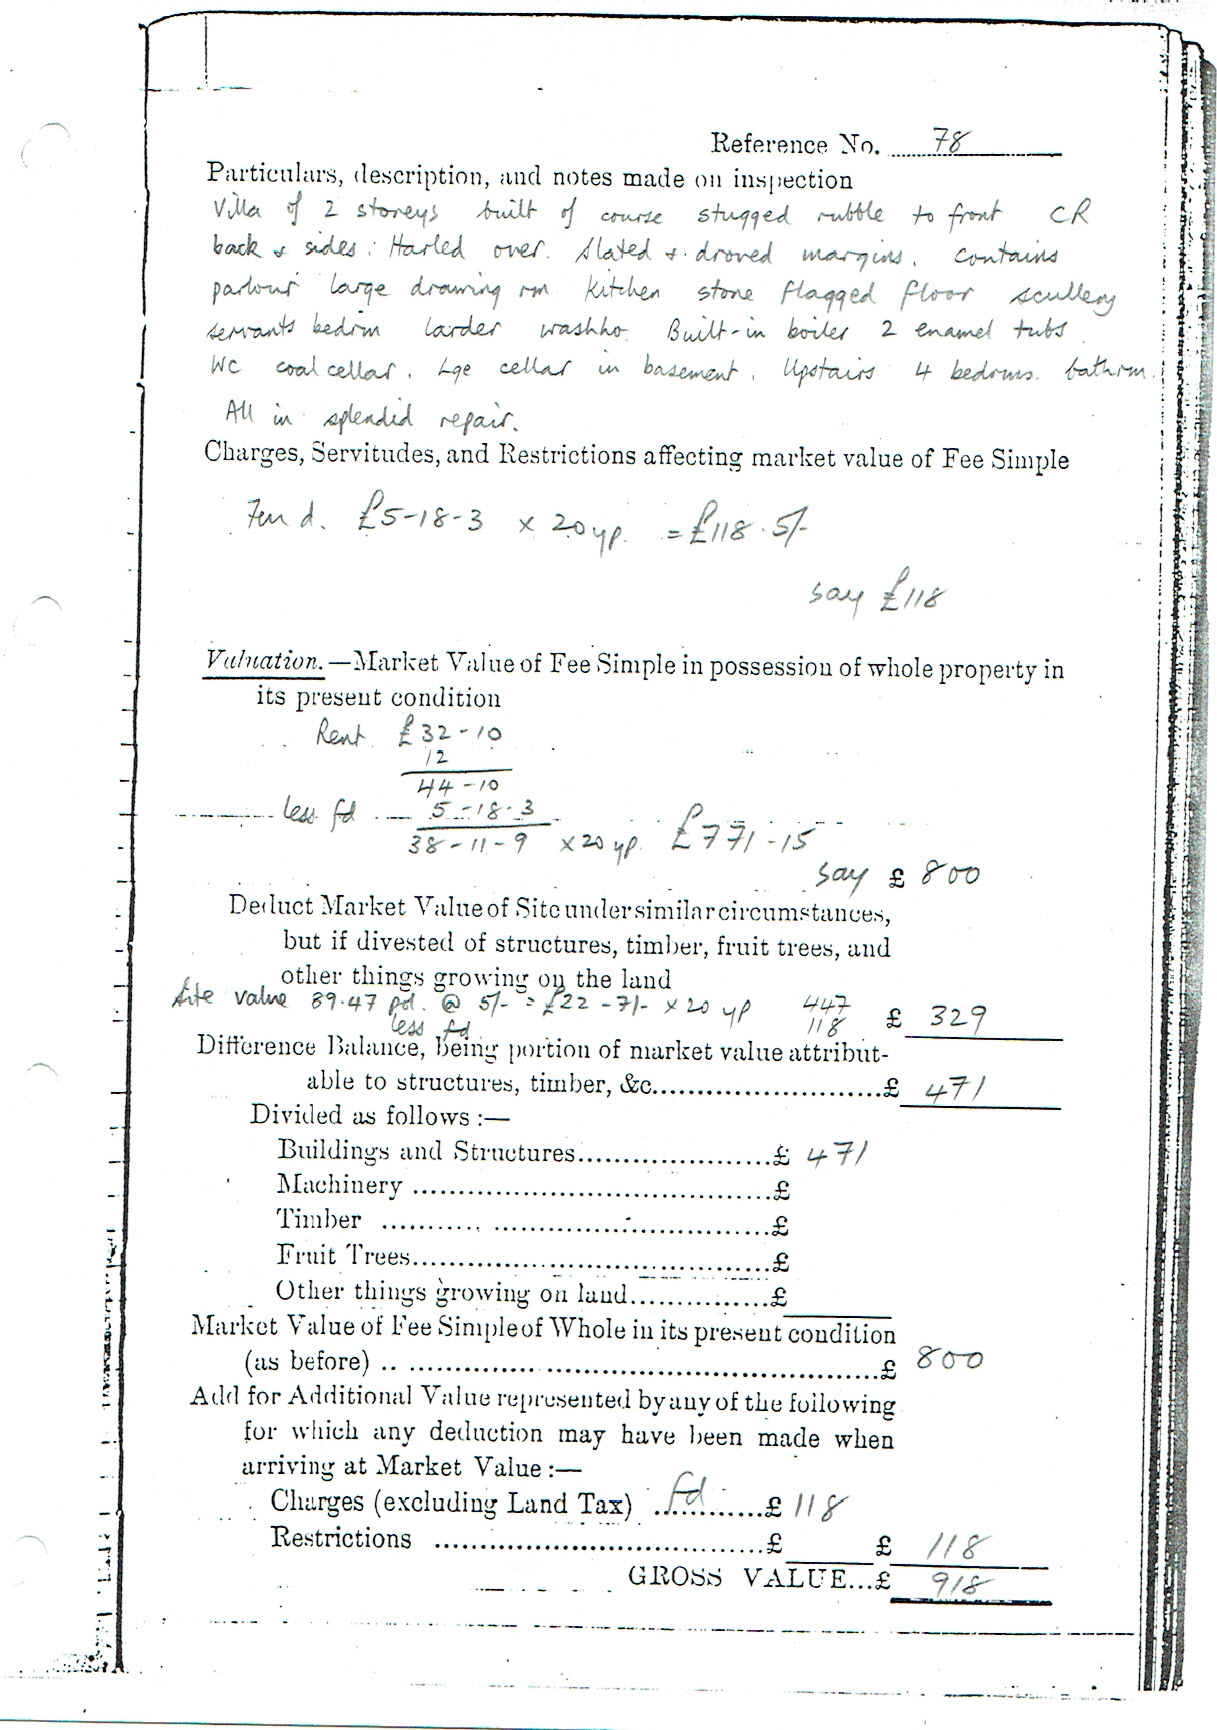 Reference No. 78
Particulars, description, and notes made on inspection
Villa of 2 storeys built of course stugged rubble to front CR
back & sides: Harled over. Slated & droved margins. Contains
parlour large drawing rm Kitchen stone flagged floor scullery
servants bedrm larder washho. Built-in boiler 2 enamel tubs.
WC coal cellar. Lge cellar in basement. Upstairs 4 bedrms. bathrm.
All in splendid repair.
Charges, Servitudes, and Restrictions affecting market value of Fee Simple
Feu d. £5-18-3 x 20 yp. = £118.5/-
say £118
Valuation.—Market Value of Fee Simple in possession of whole property in
its present condition
Rent £32-10
12
44-10
less fd 5-18-3
38-11-9 x 20 yp. £771-15
say £ 800
Deduct Market Value of Site under similar circumstances,
but if divested of structures, timber, fruit trees, and
other things growing on the land
Site value 89.47 pol. @ 5/- = £22-7/- x 20 yp 447
less fd. 118 £ 329
Difference Balance, being portion of market value attribut-
able to structures, timber, &c..........................£ 471
Divided as follows :—
Buildings and Structures......................£ 471
Machinery ........................................£
Timber ........... ..............................£
Fruit Trees........................................£
Other things growing on land...............£
Market Value of Fee Simple of Whole in its present condition
(as before) .. ......................................................£ 800
Add for Additional Value represented by any of the following
for which any deduction may have been made when
arriving at Market Value :—
Charges (excluding Land Tax) ..fd..........£ 118
Restrictions .....................................£ £ 118
GROSS VALUE...£ 918